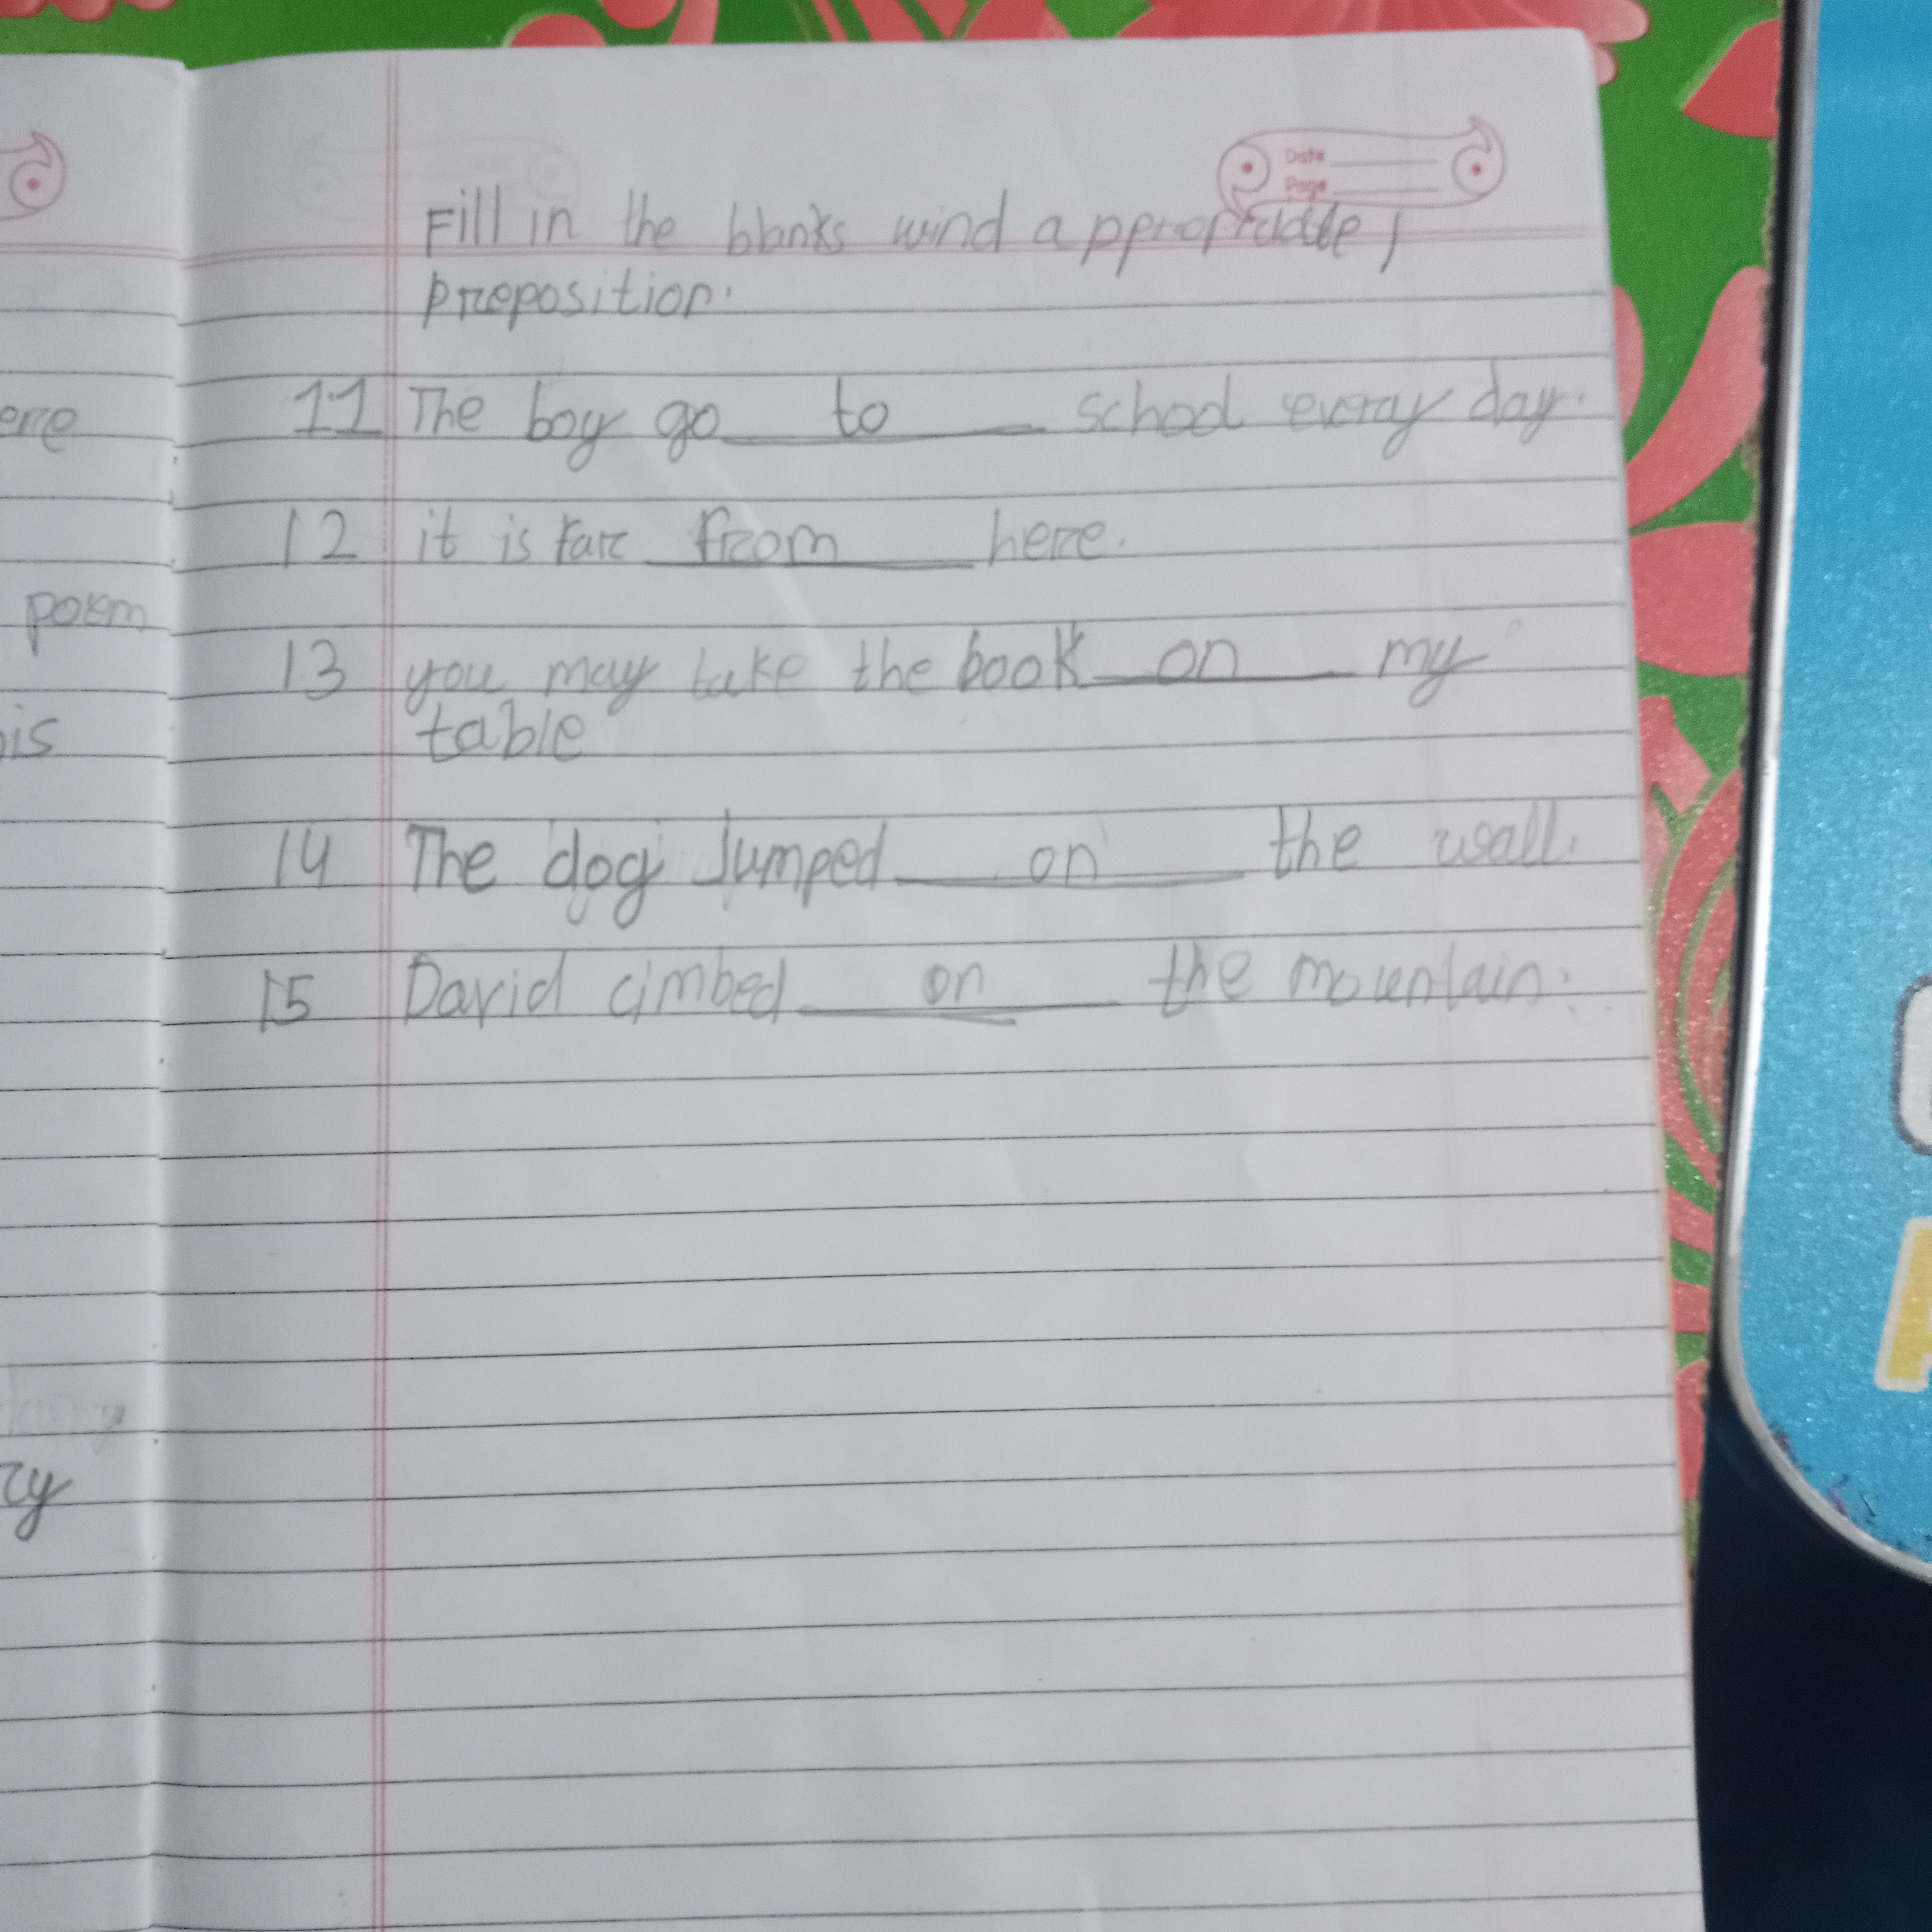 ere
poem
is
ry
Date
Page
Fill in the blanks wind appropriate
preposition.
11 The boy go to school every day.
12 it is far from here.
13 you may take the book on my
table
14 The dog Jumped on the wall.
15 David cimbed on the mountain.